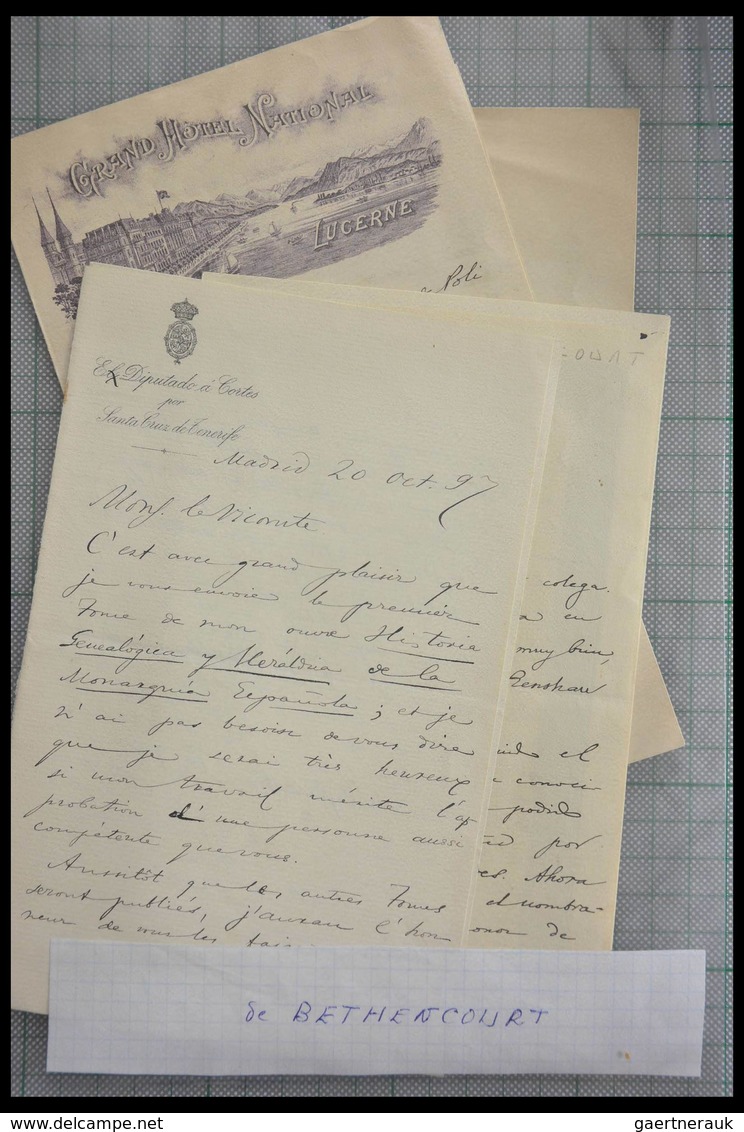 GRAND HÔTEL NATIONAL
LUCERNE
Poli
OURT
El Diputado á Cortes
por
Santa Cruz de Tenerife
Madrid 20 Oct. 97
Mons. le Vicomte
C'est avec grand plaisir que
je vous envoie le premier
Tome de mon ouvre Historia
Genealógica y Heráldica de la
Monarquía Española; et je
n'ai pas besoin de vous dire
que je serai très heureux
si mon travail mérite l'ap
probation d'une personne aussi
compétente que vous.
Aussitôt que les autres Tomes
seront publiés, j'aurau l'hon
neur de vous les fai
colega.
en
muy bien,
el
conoci
podido
por
es. Ahora
el nombra-
onor de
de BETHENCOURT
gaertnerauk